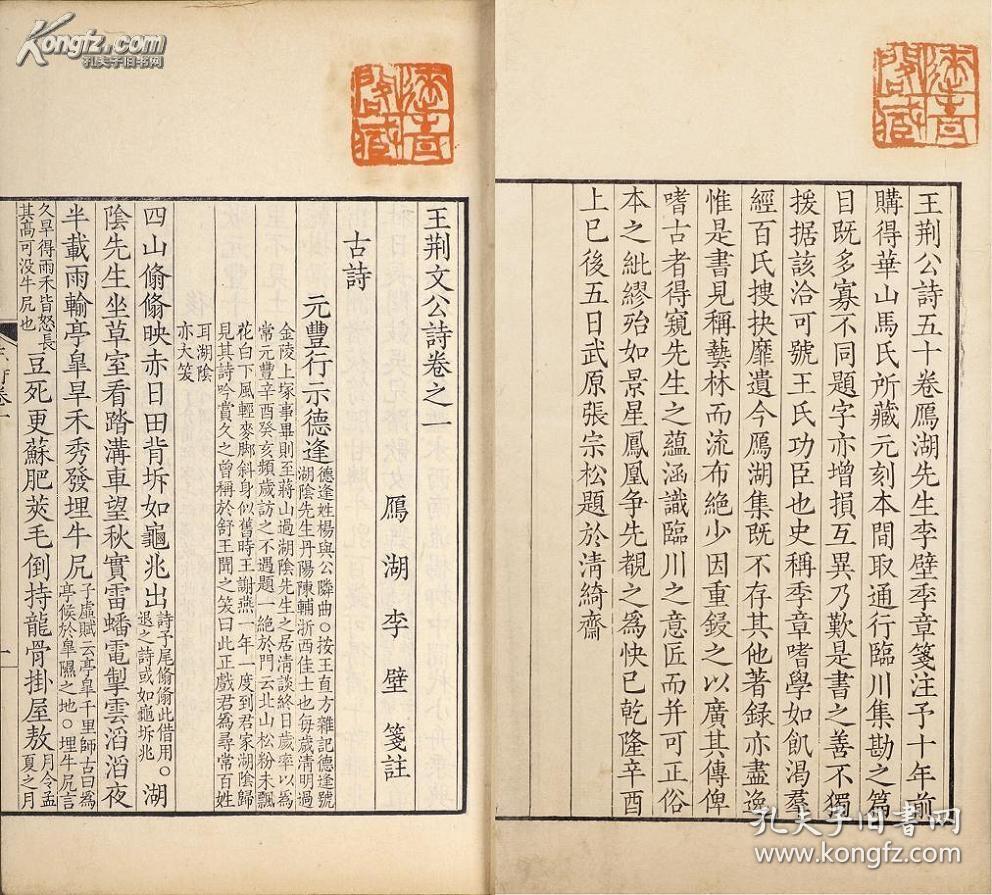 王荆公詩五十卷鴈湖先生李壁季章箋注予十年前
購得華山馬氏所藏元刻本間取通行臨川集勘之篇
目既多寡不同題字亦增損互異乃歎是書之善不獨
援据該洽可號王氏功臣也史稱季章嗜學如飢渴羣
經百氏搜抉靡遺今鴈湖集既不存其他著録亦盡逸
惟是書見稱藝林而流布絶少因重鋟之以廣其傳俾
嗜古者得窺先生之藴涵識臨川之意匠而并可正俗
本之紕繆殆如景星鳳凰争先覩之爲快已乾隆辛酉
上巳後五日武原張宗松題於清綺齋
王荆文公詩卷之一
鴈湖李壁箋註
古詩
元豐行示德逢
德逢姓楊與公隣曲○按王直方雜記德逢號
湖陰先生丹陽陳輔浙西佳士也每歲清明過
金陵上塚事畢則至蔣山過湖陰先生之居清談終日歲率以爲
常元豐辛酉癸亥頻歲訪之不遇題一絶於門云北山松粉未飄
花白下風輕麥脚斜身似舊時王謝燕一年一度到君家湖陰歸
見其詩吟賞久之曾稱於舒王聞之笑曰此正戲君爲尋常百姓
耳湖陰
亦大笑
四山翛翛映赤日田背坼如龜兆出詩予尾翛翛此借用○退之詩或如龜坼兆湖
陰先生坐草室看踏溝車望秋實雷蟠電掣雲滔滔夜
半載雨輸亭臯旱禾秀發埋牛尻子虛賦云亭臯千里師古曰爲亭候於臯隰之地○埋牛尻言
久旱得雨禾皆怒長其高可没牛尻也豆死更蘇肥莢毛倒持龍骨掛屋敖月令孟夏之月
Kongfz.com
孔夫子旧书网
孔夫子旧书网
www.kongfz.com